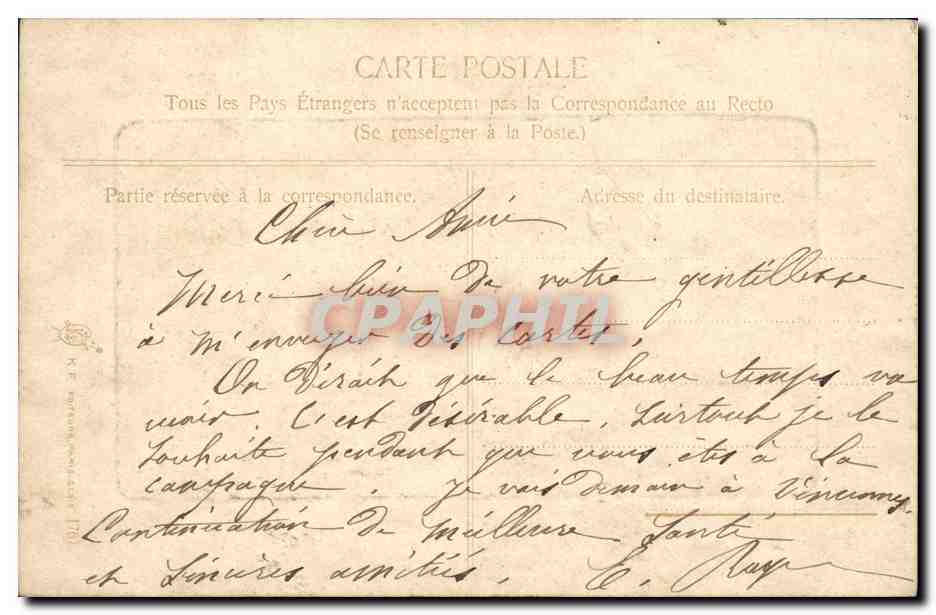 CARTE POSTALE
Tous les Pays Étrangers n'acceptent pas la Correspondance au Recto
(Se renseigner à la Poste.)
Partie réservée à la correspondance.
Adresse du destinataire.
Chère Amie
Merci bien de votre gentillesse
à m'envoyer des cartes.
CPAPHIL
On dirait que le beau temps va
. C'est désirable, surtout je le
souhaite pendant que vous êtes à la
campagne. Je vais demain à Vincennes.
Continuation de meilleure santé
et sincères amitiés. E.
K. F.